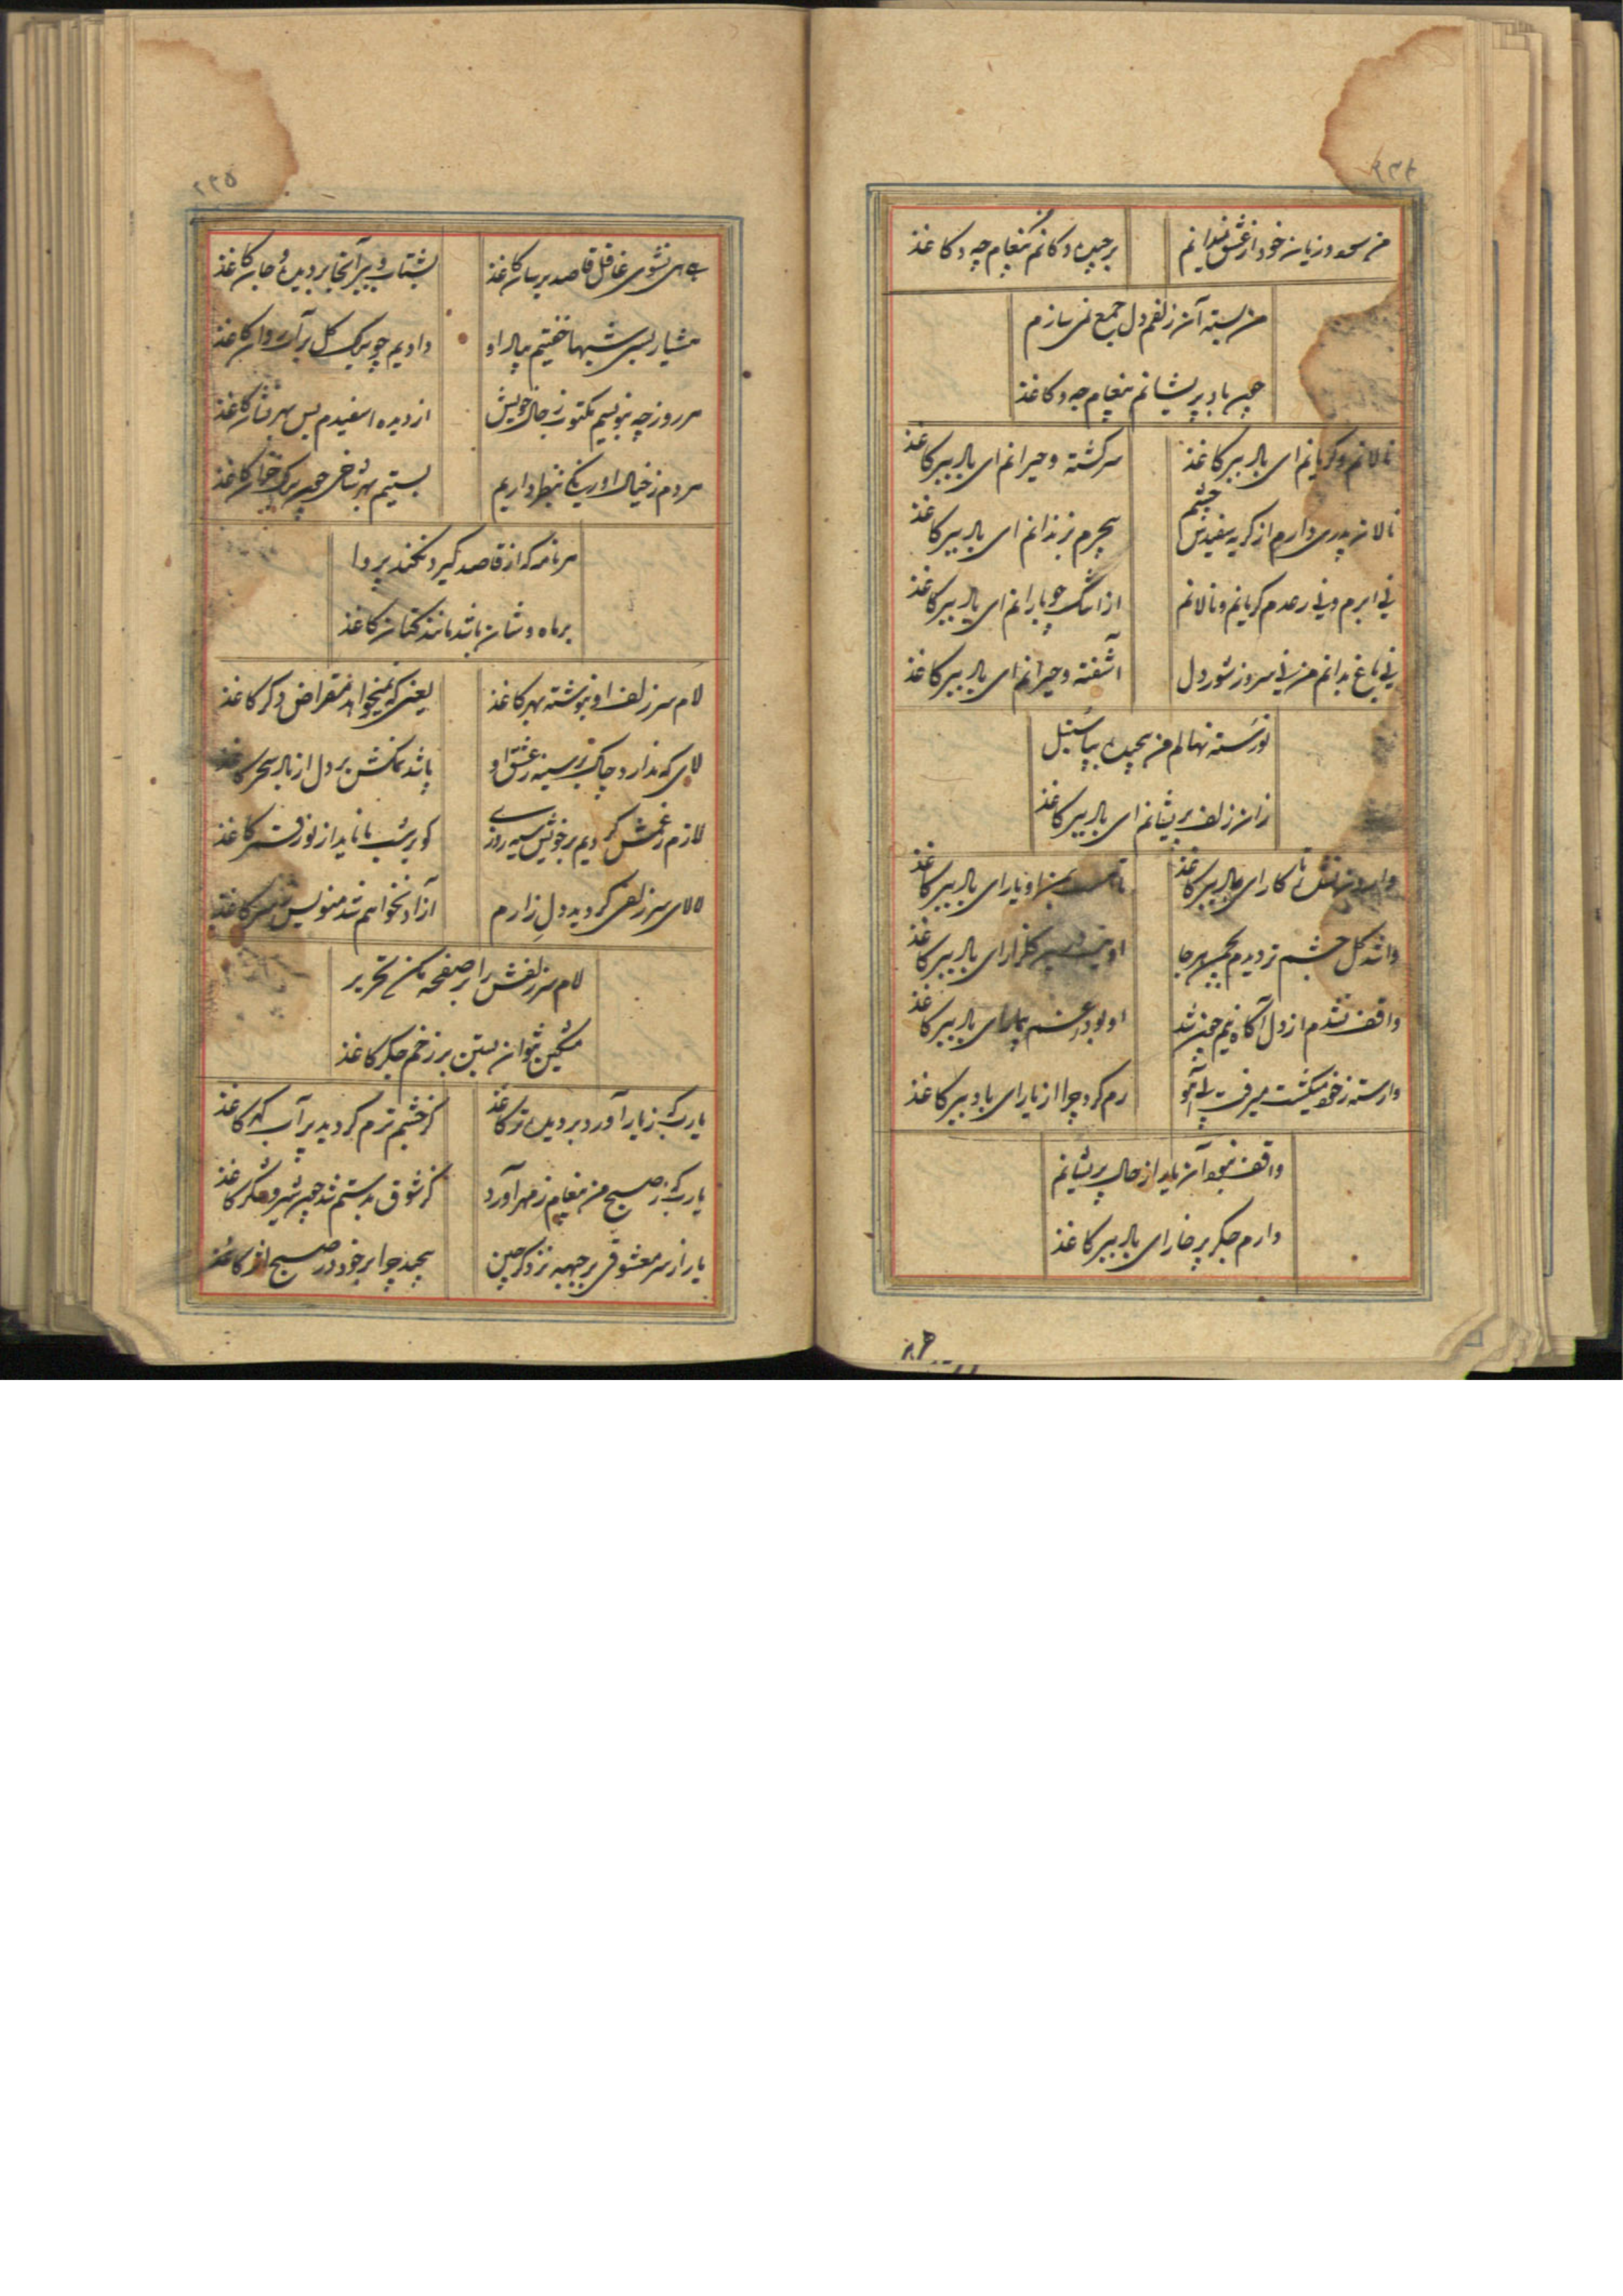 ۲۳۴
من سود و زیان خود از عشق نمیدانم
برچیده دکانم پیغام چه و کاغذ
من بسته آن زلفم دل جمع نمی سازم
چون باد پریشانم پیغام چه و کاغذ
نالانم و گریانم ای باد ببر کاغذ
سرگشته و حیرانم ای باد ببر کاغذ
نالان پدری دارم از گریه سفیدش چشم
بیجرم بزندانم ای باد ببر کاغذ
نی ابرم و نی رعدم گریانم و نالانم
از اشک چو بارانم ای باد ببر کاغذ
نی باغ بدانم من نی سروز شور دل
آشفته و حیرانم ای باد ببر کاغذ
نورسته نهالم من پیچیده بپا سنبل
زان زلف پریشانم ای باد ببر کاغذ
ای باد ببر کاغذ
یار ای باد ببر کاغذ
واشد گل چشم تر دیدم بچمن هر جا
گلزار ای باد ببر کاغذ
واقف نشدم از دل آگاه نیم چون شد
او بود ای باد ببر کاغذ
وارسته ز خود میگشت میرفت پی آهو
رم کرد چرا از یار ای باد ببر کاغذ
واقف نبود آن یار از حال پریشانم
دارم جگر پرخار ای باد ببر کاغذ
۲۳۵
هی هی نشوی غافل قاصد برسان کاغذ
بشتاب و ببر آنجا بر دیده و جان کاغذ
هشیار بسی شبها خفتیم بیاد او
دادیم چو برگ گل بر آب روان کاغذ
هر روز چه بنویسم مکتوب ز حال خویش
از دیده سفیدم بس بهر کاغذ
هر دم ز خیال او رنگی بنظر داریم
بستیم بهر شاخی چون برگ خزان کاغذ
هر نامه که از قاصد گیرد نکند پروا
بر ماه وشان باشد مانند کتان کاغذ
لام سر زلف او نوشته بهر کاغذ
یعنی که نمیخواهد مقراض دگر کاغذ
لای که ندارد چاک بر سینه ز عشق او
باشد بر دل از ناله سحر کاغذ
لازم ز غمش کردیم بر خویش سیه روزی
کو بر شب ما ناید از نور کاغذ
لالای سر زلفی گردید دل زارم
آزاد نخواهم شد منویس کاغذ
لام سر زلفش را بر صفحه مکن تحریر
مشکین نتوان بستن بر زخم جگر کاغذ
یارب که ز یار آورد بر دیده تر کاغذ
کز چشم ترم گردید پر آب گهر کاغذ
یارب که ز صبح من پیغام ز مهر آورد
کز شوق بدستم شد چون شیر و شکر کاغذ
یار از سر معشوقی بر جبهه نزد گر چین
پیچید چرا بر خود در صبح کاغذ